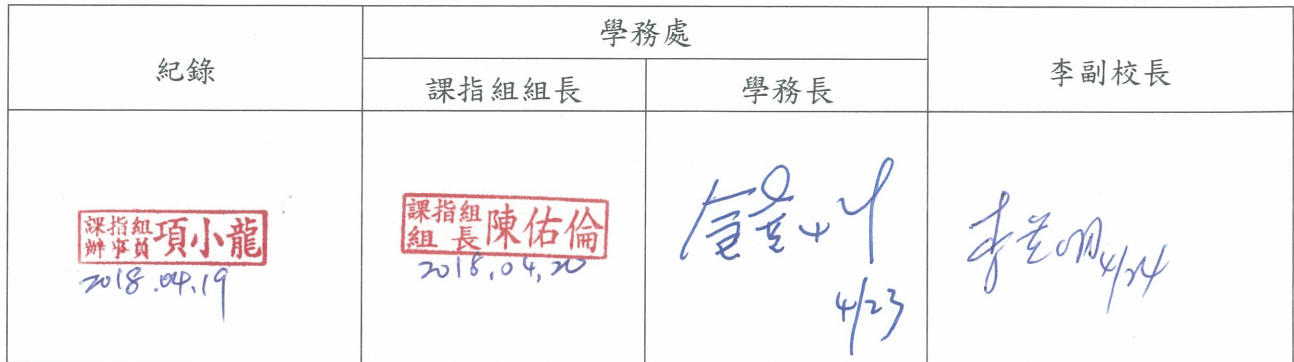 紀錄
學務處
課指組組長
學務長
李副校長
課指組
辦事員
項小龍
2018.04.19
課指組
組長
陳佑倫
2018.04.20
4/23
4/24